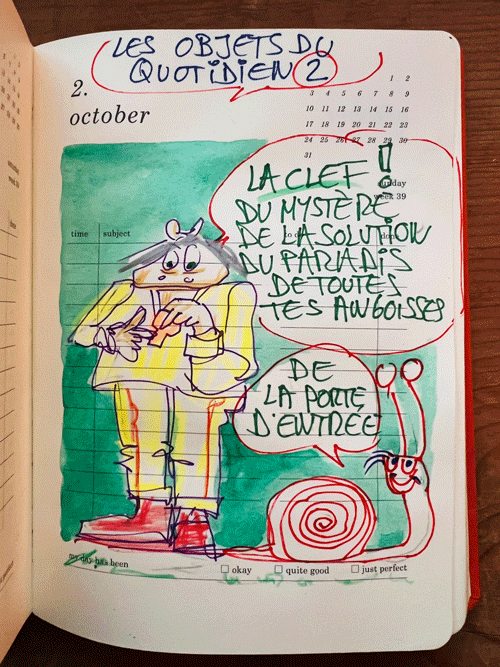 LES OBJETS DU
QUOTIDIEN 2
2.
october
1 2
3 4 5 6 7 8 9
10 11 12 13 14 15 16
17 18 19 20 21 22 23
24 25 26 27 28 29 30
31
sunday
week 39
time subject
LA CLEF!
DU MYSTERE
DE LA SOLUTION
DU PARADIS
DE TOUTES
TES ANGOISSES
DE
LA PORTE
D'ENTRÉE
my day has been
okay quite good just perfect